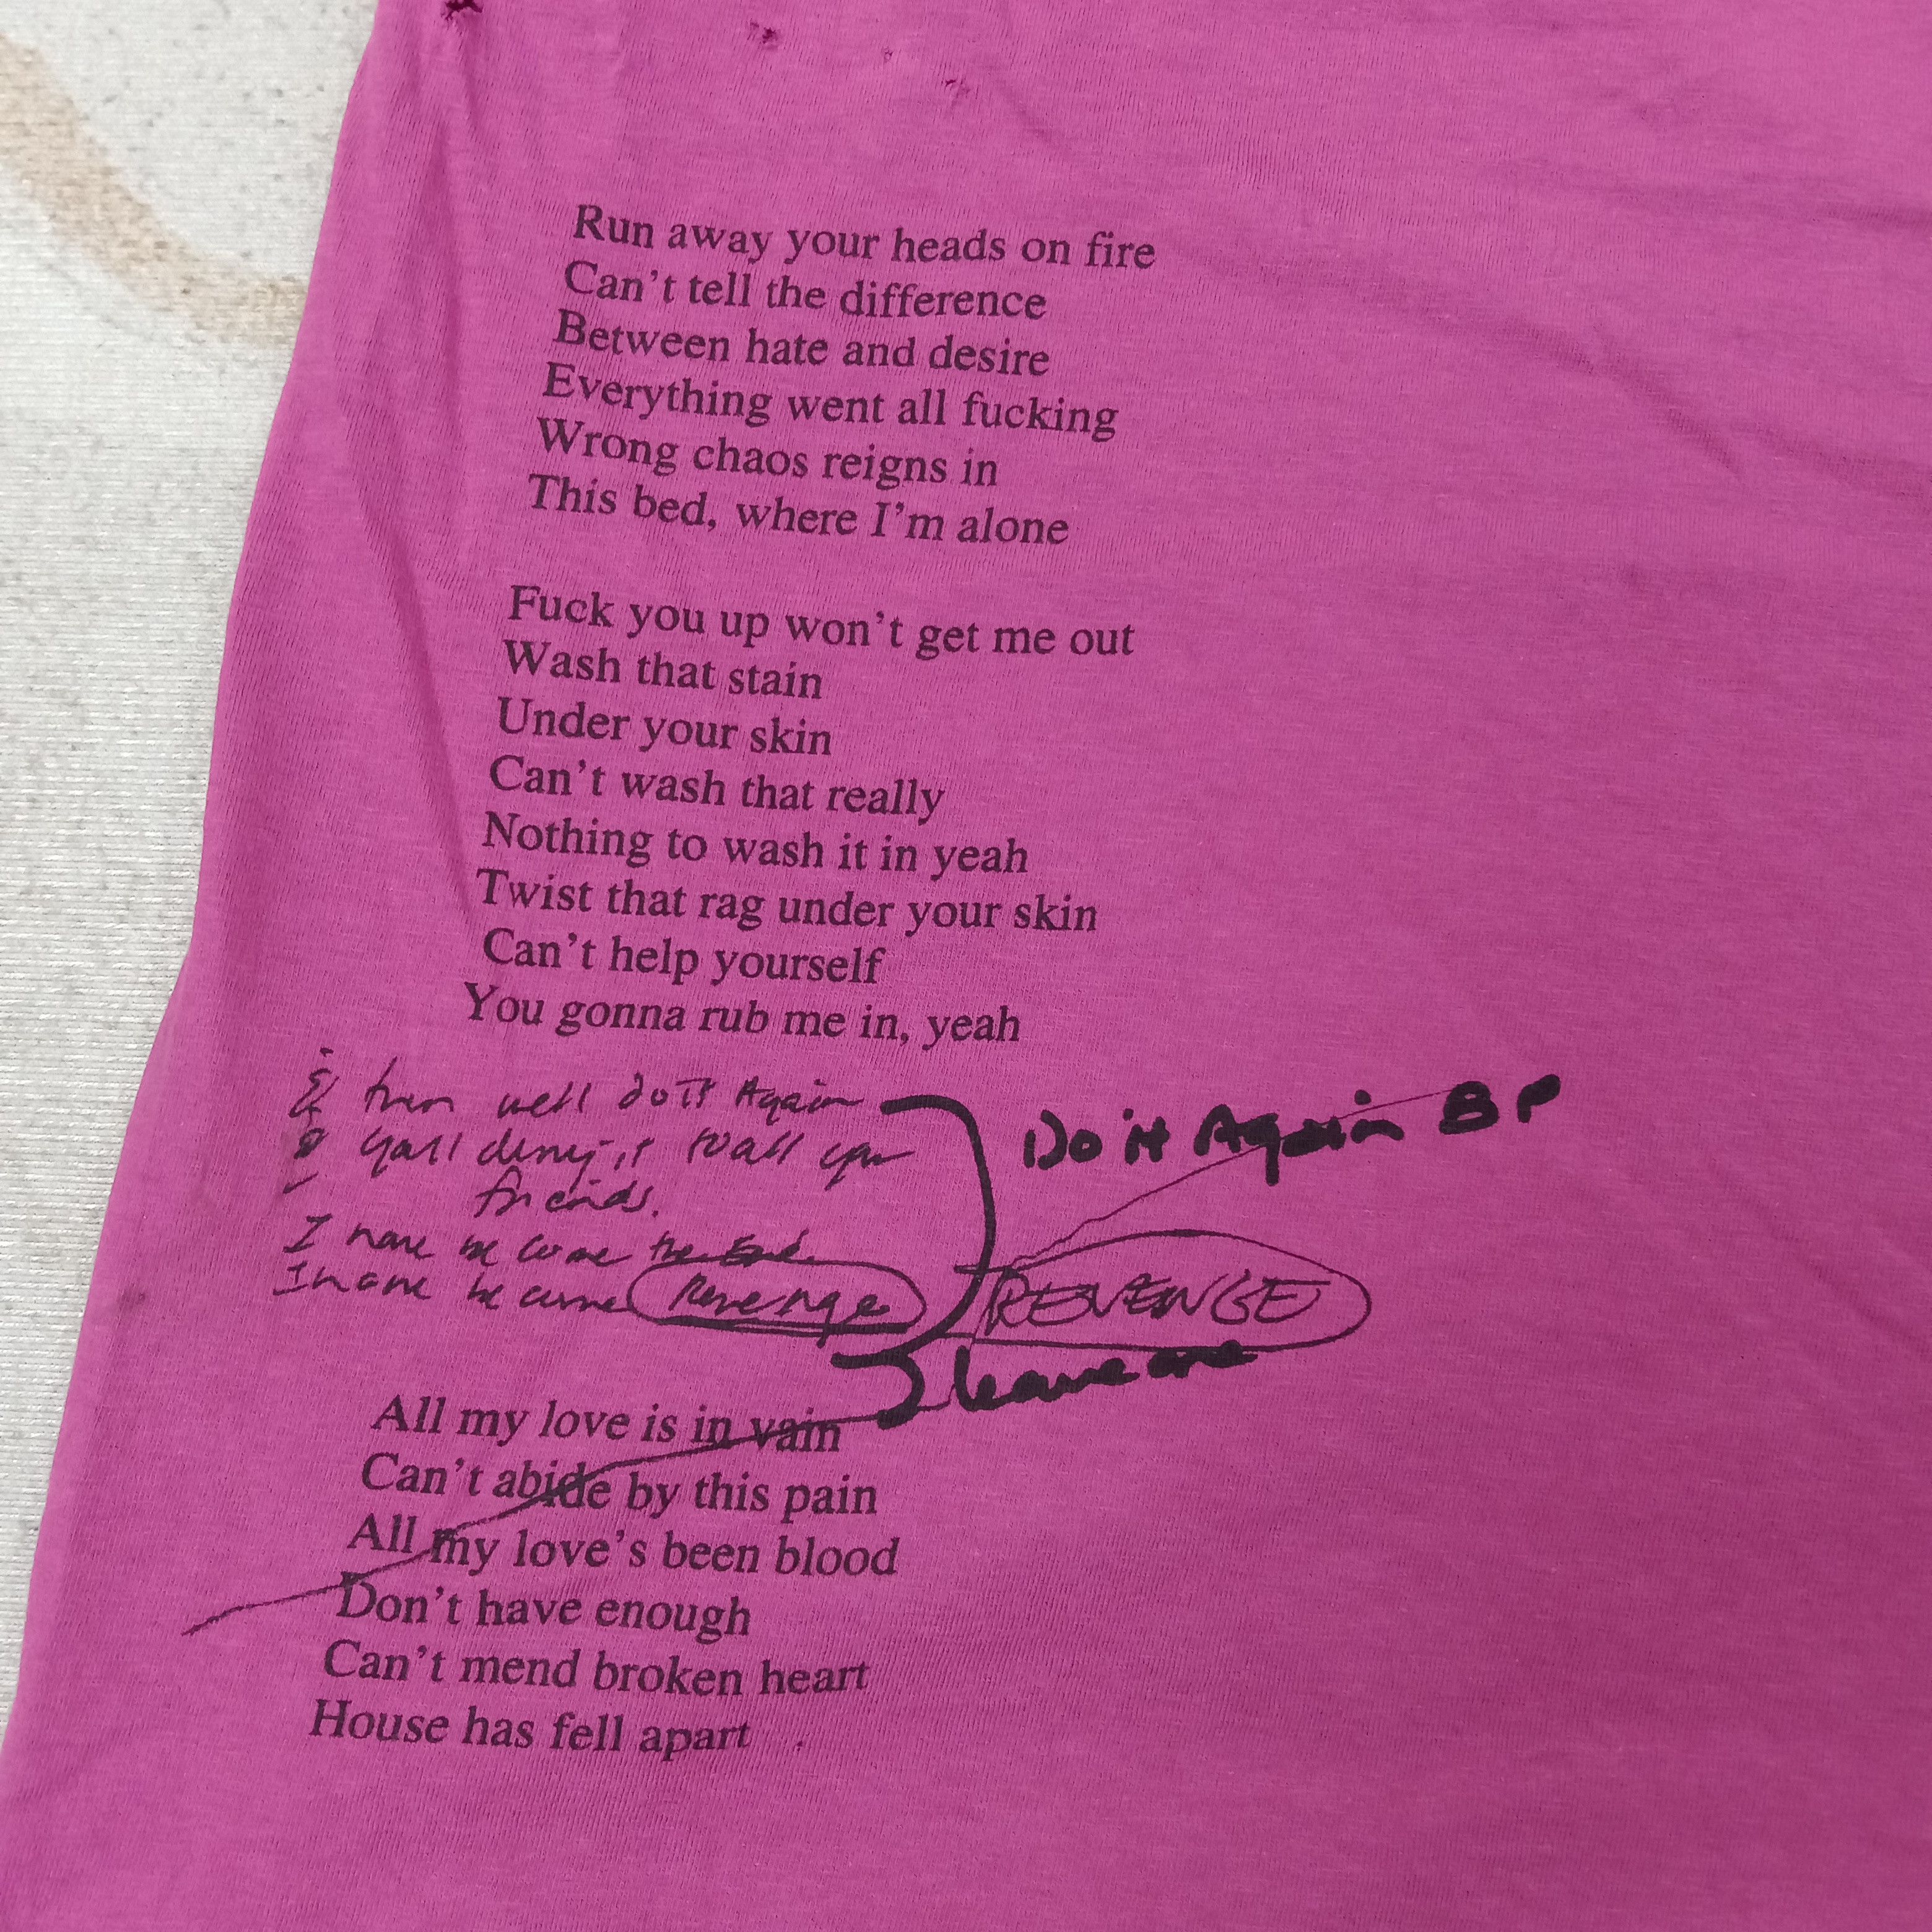 Run away your heads on fire
Can't tell the difference
Between hate and desire
Everything went all fucking
Wrong chaos reigns in
This bed, where I'm alone
Fuck you up won't get me out
Wash that stain
Under your skin
Can't wash that really
Nothing to wash it in yeah
Twist that rag under your skin
Can't help yourself
You gonna rub me in, yeah
& then well do it Again
Do it Again BP
yall deny it to all your
friends.
I have become the End
I have become Revenge
REVENGE
leave one
All my love is in vain
Can't abide by this pain
All my love's been blood
Don't have enough
Can't mend broken heart
House has fell apart